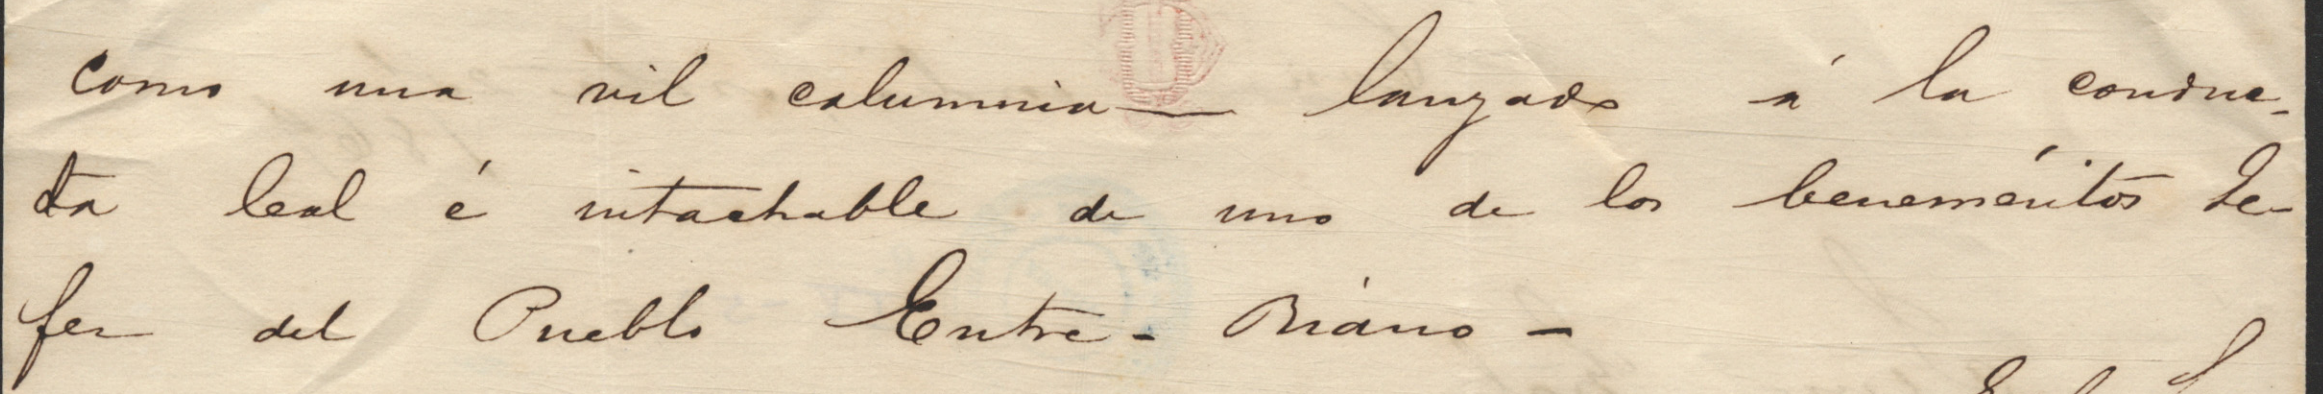 como una vil calumnia — lanzado á la conduc-
ta leal é intachable de uno de los beneméritos Je-
fes del Pueblo Entre-Riano —